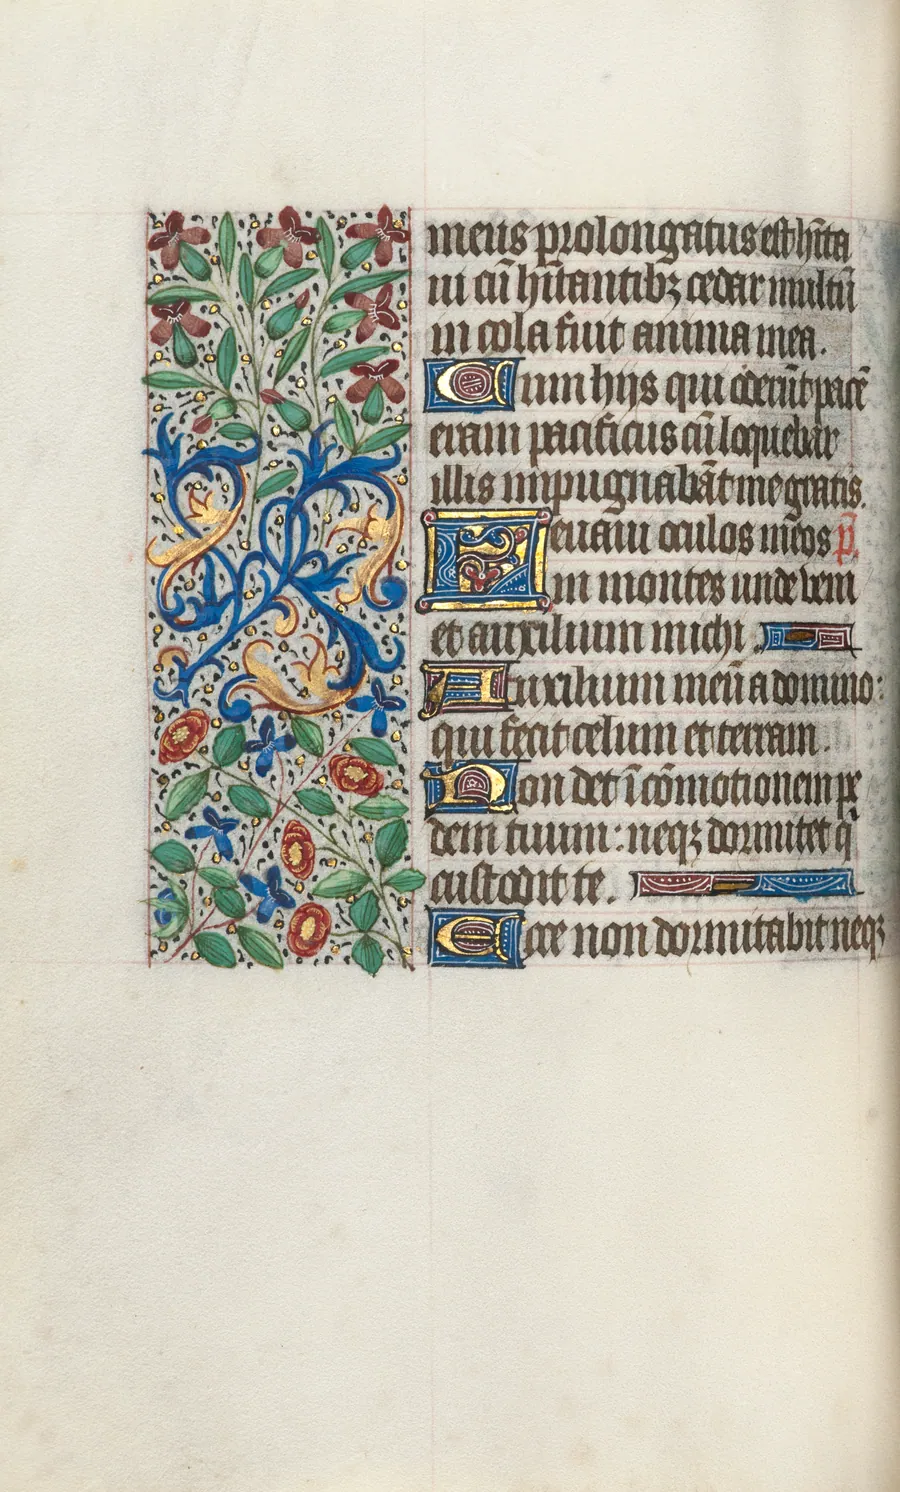 meus prolongatus est hĩta
ui cũ hĩtantibꝫ cedar multũ
in cola fuit anima mea.
Cum hijs qui oderũt pacẽ
eram pacificus cũ loquebar
illis impugnabãt me gratis.
Leuaui oculos meos p̃.
in montes unde veni
et auxilium michi.
Auxilium meũ a domino:
qui fecit celum et terram.
Non det ĩ cõmotionem pe
dem tuum: neqꝫ dormitet q̃
custodit te.
Ecce non dormitabit neqꝫ